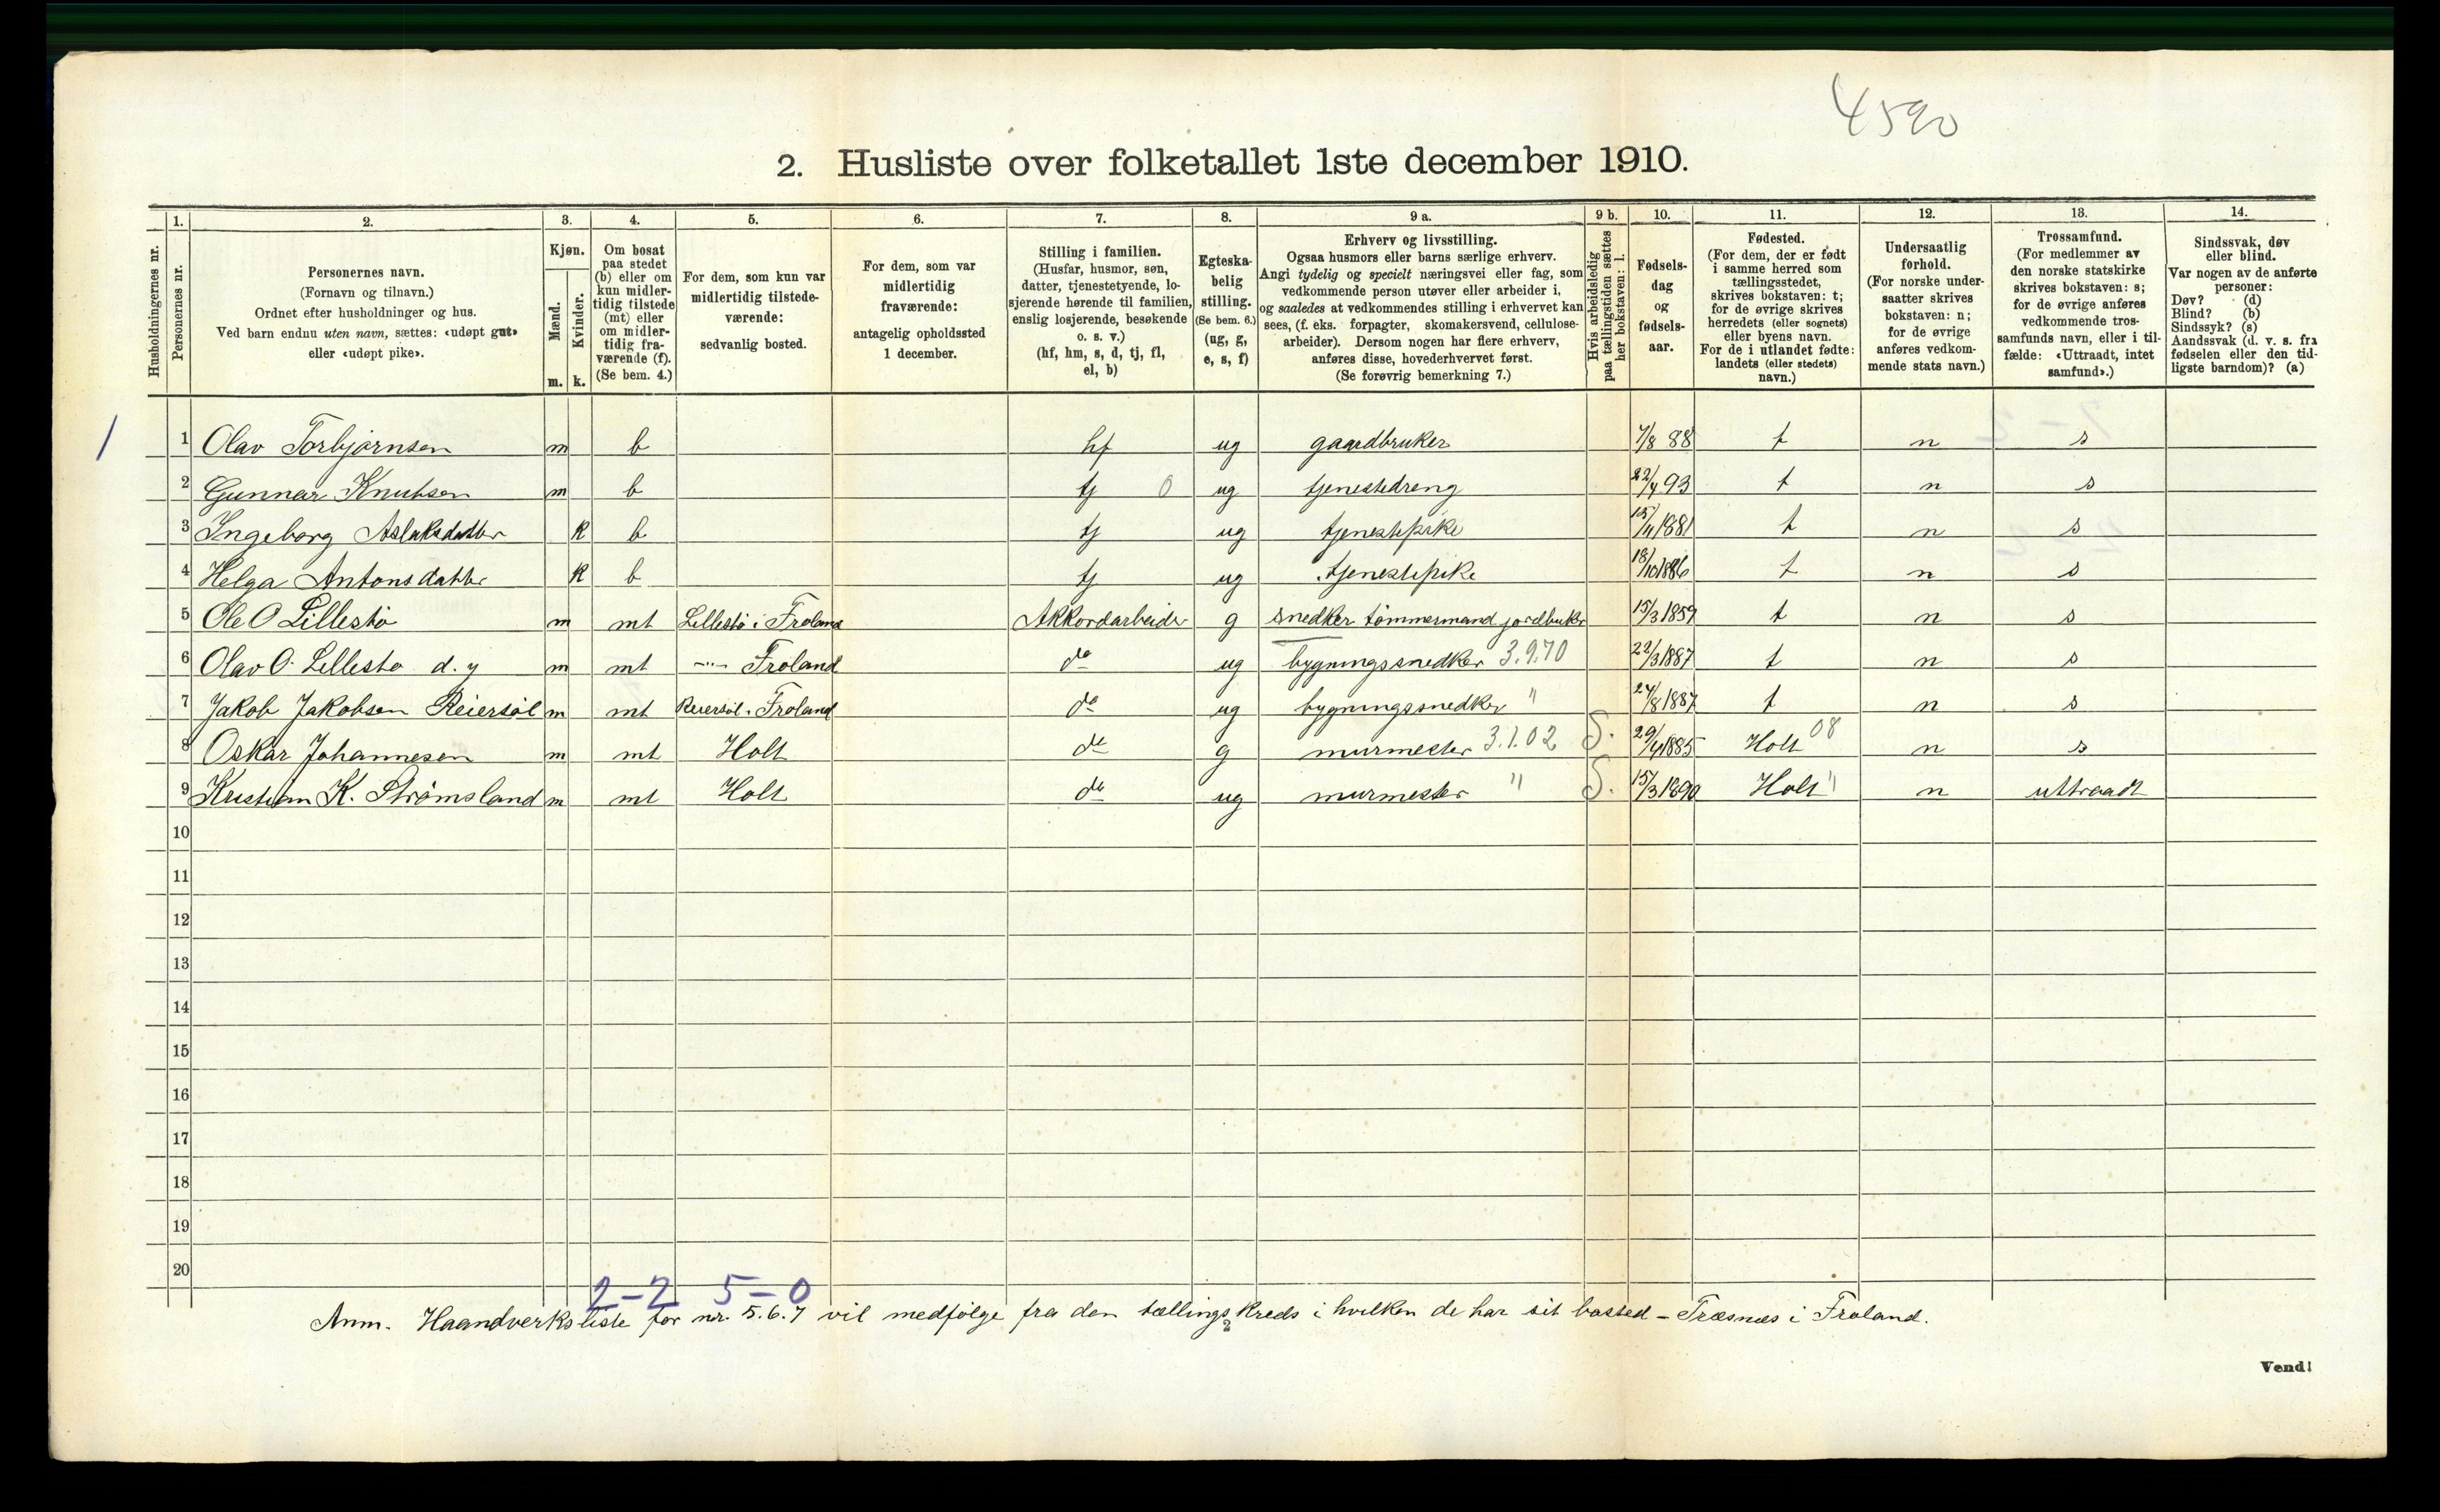 4590
2. Husliste over folketallet 1ste december 1910.
1. 2. 3. 4. 5. 6. 7. 8. 9 a. 9 b. 10. 11. 12. 13. 14.
Husholdningernes nr.
Personernes nr.
Personernes navn.
(Fornavn og tilnavn.)
Ordnet efter husholdninger og hus.
Ved barn endnu uten navn, sættes: «udøpt gut»
eller «udøpt pike».
Kjøn.
Mænd.
Kvinder.
m. k.
Om bosat
paa stedet
(b) eller om
kun midler-
tidig tilstede
(mt) eller
om midler-
tidig fra-
værende (f).
(Se bem. 4.)
For dem, som kun var
midlertidig tilstede-
værende:
sedvanlig bosted.
For dem, som var
midlertidig
fraværende:
antagelig opholdssted
1 december.
Stilling i familien.
(Husfar, husmor, søn,
datter, tjenestetyende, lo-
sjerende hørende til familien,
enslig losjerende, besøkende
o. s. v.)
(hf, hm, s, d, tj, fl,
el, b)
Egteska-
belig
stilling.
(Se bem. 6.)
(ug, g,
e, s, f)
Erhverv og livsstilling.
Ogsaa husmors eller barns særlige erhverv.
Angi tydelig og specielt næringsvei eller fag, som
vedkommende person utøver eller arbeider i,
og saaledes at vedkommendes stilling i erhvervet kan
sees, (f. eks. forpagter, skomakersvend, cellulose-
arbeider). Dersom nogen har flere erhverv,
anføres disse, hovederhvervet først.
(Se forøvrig bemerkning 7.)
Hvis arbeidsledig
paa tællingstiden sættes
her bokstaven: l.
Fødsels-
dag
og
fødsels-
aar.
Fødested.
(For dem, der er født
i samme herred som
tællingsstedet,
skrives bokstaven: t;
for de øvrige skrives
herredets (eller sognets)
eller byens navn.
For de i utlandet fødte:
landets (eller stedets)
navn.)
Undersaatlig
forhold.
(For norske under-
saatter skrives
bokstaven: n;
for de øvrige
anføres vedkom-
mende stats navn.)
Trossamfund.
(For medlemmer av
den norske statskirke
skrives bokstaven: s;
for de øvrige anføres
vedkommende tros-
samfunds navn, eller i til-
fælde: «Uttraadt, intet
samfund».)
Sindssvak, døv
eller blind.
Var nogen av de anførte
personer:
Døv? (d)
Blind? (b)
Sindssyk? (s)
Aandssvak (d. v. s. fra
fødselen eller den tid-
ligste barndom)? (a)
1 1 Olav Torbjørnsen m b hf ug gaardbruker 7/8 88 t n s
2 Gunnar Knutsen m b tj 0 ug tjenestedreng 22/4 93 t n s
3 Ingeborg Aslaksdatter k b tj ug tjenestepike 15/11 1881 t n s
4 Helga Antonsdatter k b tj ug tjenestepike 18/10 1886 t n s
5 Ole O Lillestø m mt Lillestø i Froland Akkordarbeider g snedker tømmermand jordbruker 15/3 1859 t n s
6 Olav O. Lillestø d. y m mt -"- Froland do ug bygningssnedker 3.9.70 22/3 1887 t n s
7 Jakob Jakobsen Reiersøl m mt Reiersøl. Froland do ug bygningssnedker " 24/8 1887 t n s
8 Oskar Johannesen m mt Holt do g murmester 3.1.02 S. 29/4 1885 Holt 08 n s
9 Kristian K. Strømsland m mt Holt do ug murmester " S. 15/3 1890 Holt " n uttraadt
10
11
12
13
14
15
16
17
18
19
20
2 – 2 5 – 0
Anm. Haandverksliste for nr. 5.6.7 vil medfølge fra den tællingskreds i hvilken de har sit bosted – Træsnæs i Froland.
2
Vend!